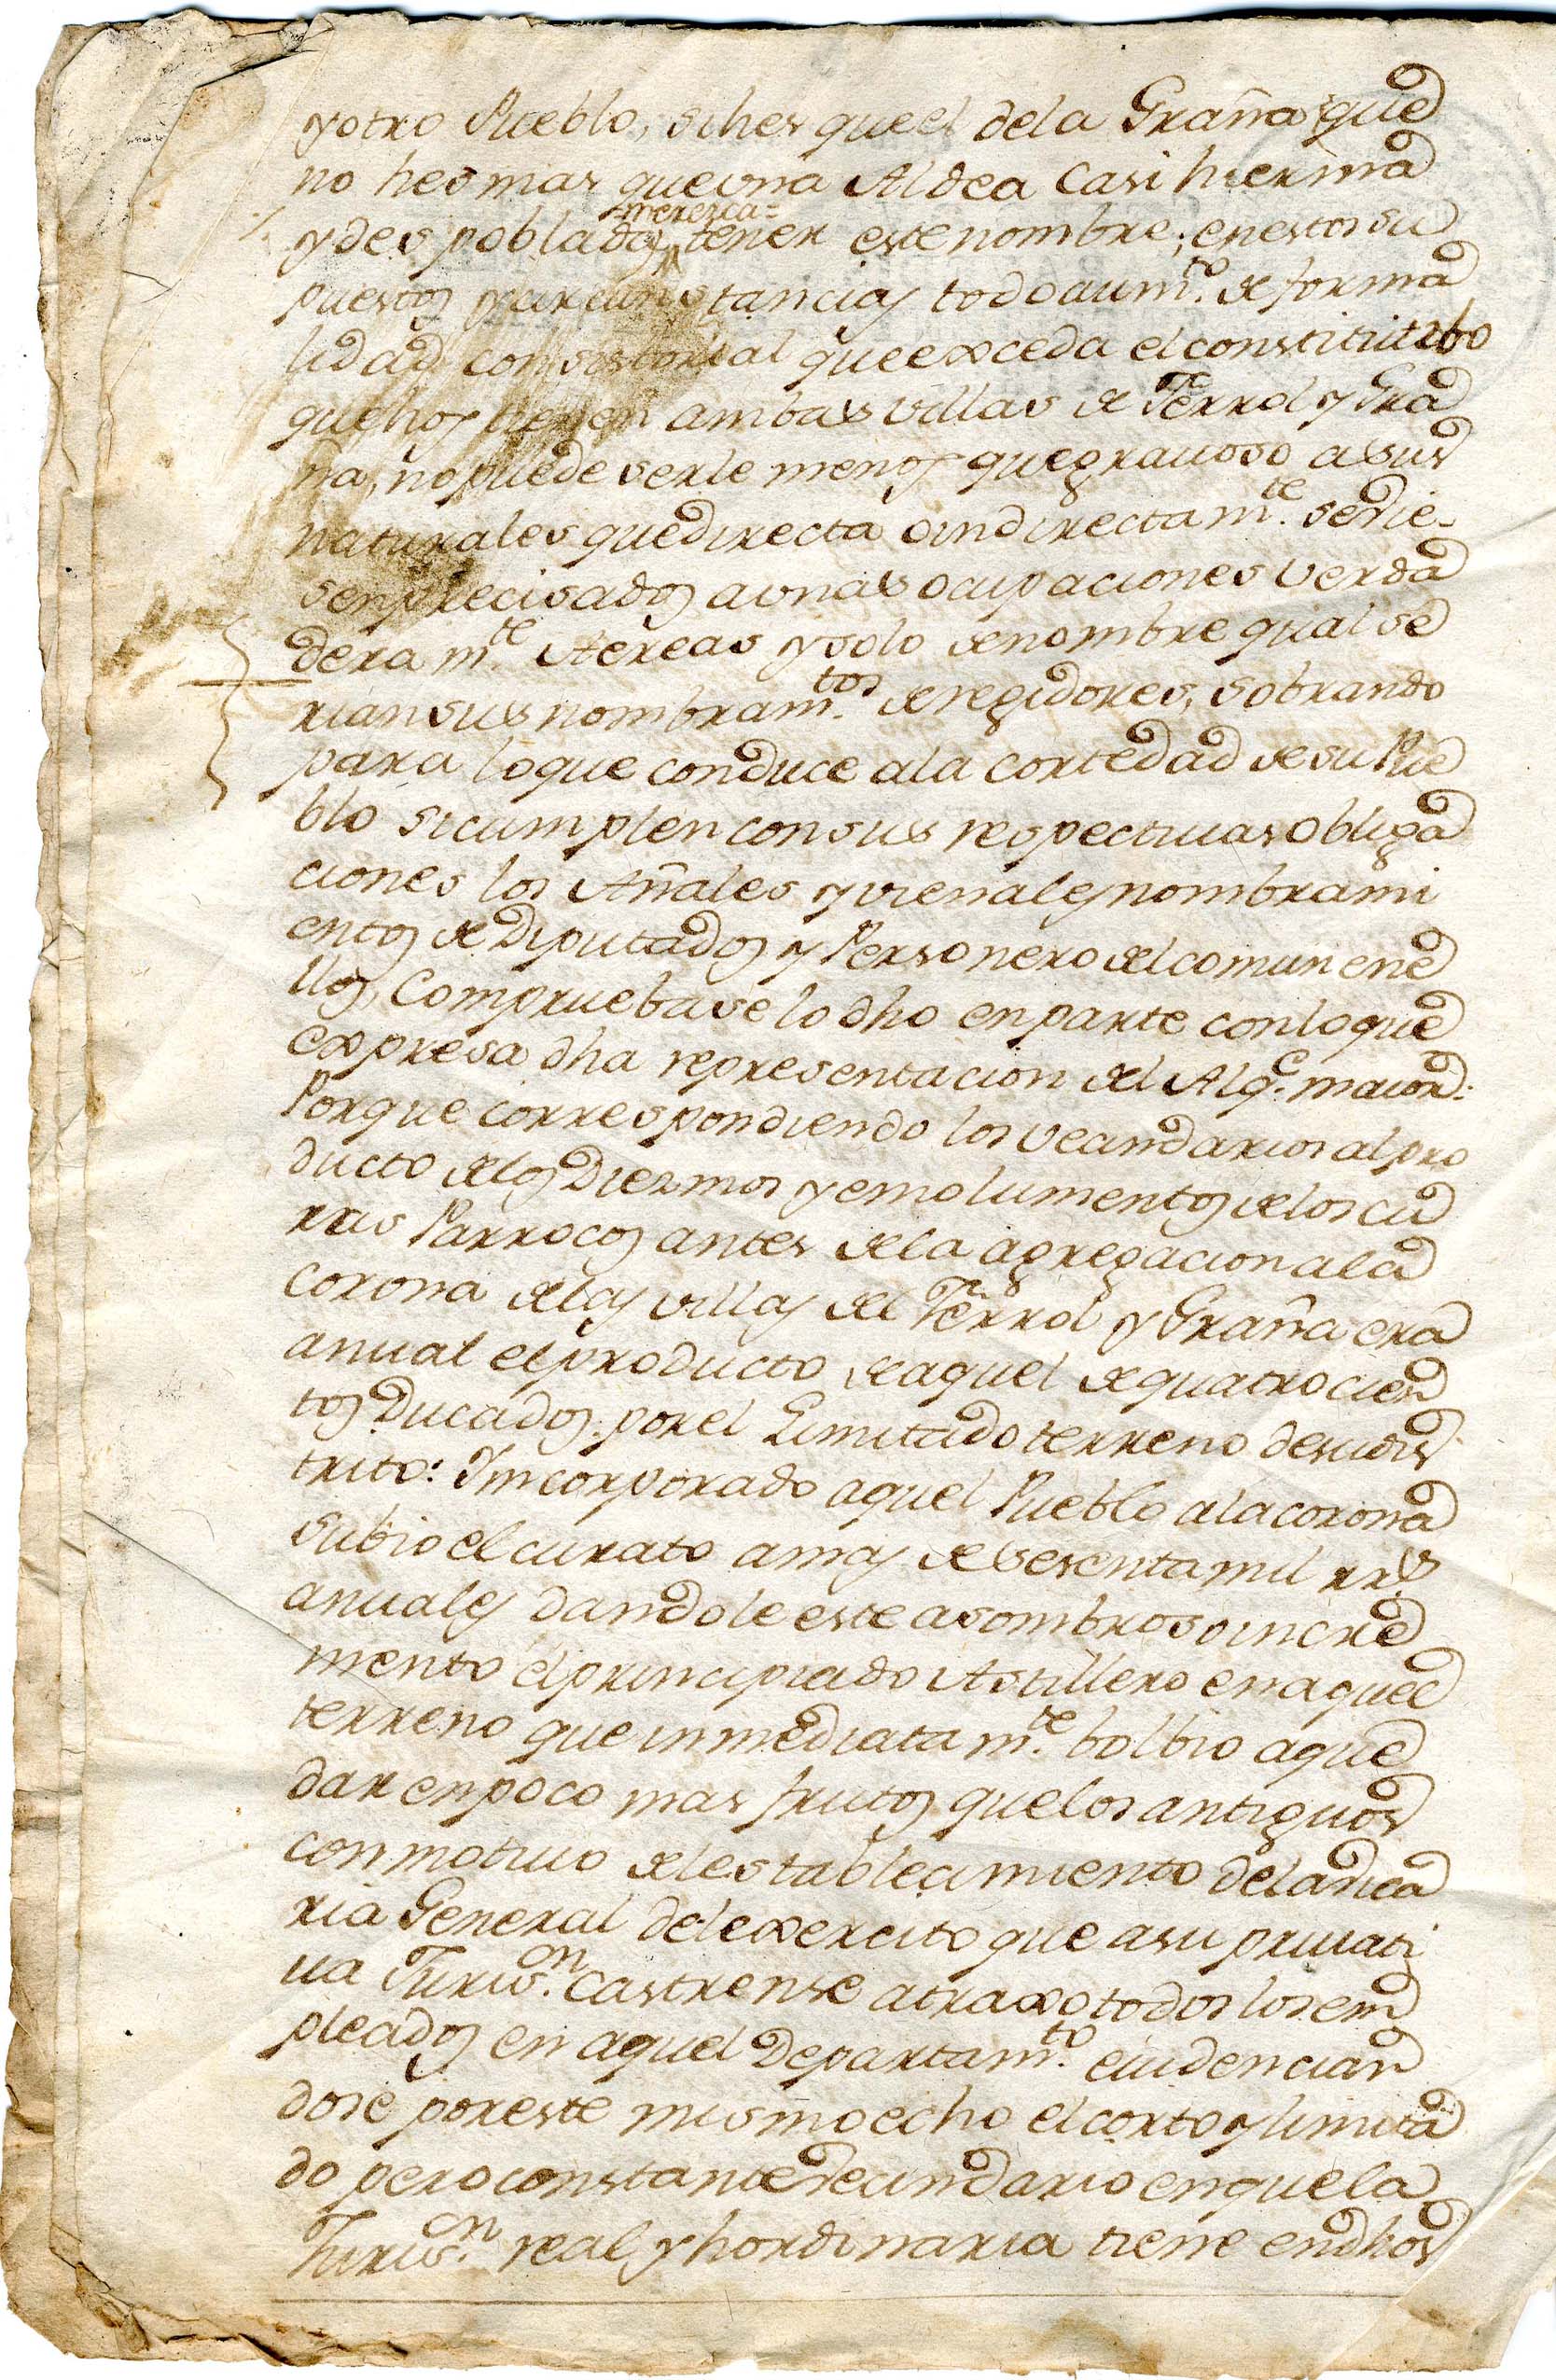 y otro Pueblo, si hes que el de la Graña que
no hes mas que una Aldea Casi hierma
=merezca=
y des poblada, tener este nombre; en estos su
puestos y circunstancias todo aum.to de forma
lidad consistorial que exceda el constitutibo
que hoy tienen ambas villas de Ferrol y Gra
ña, no puede serle menos que grauoso a sus
naturales que directa o indirectam.te se vie-
sen precisados a unas ocupaciones verda
deram.te Aereas y solo de nombre qual se
rian sus nombram.tos de regidores, sobrando
para lo que conduce a la cortedad de su Pue
blo si cumplen con sus respectiuas obliga
ciones los Añales y vienales nombrami
entos de Diputados y Personero del comun en e
llos, Compruebase lo dho en parte con lo que
expresa dha representacion del Alq.e maior:
Porque correspondiendo los vecindarios al pro
ducto de los Diezmos y emolumentos de los cu
rras Parrocos antes de la agregacion a la
corona de las villas del Ferrol y Graña era
anual el producto de aquel de quatrocien
tos Ducados por el Limitado terreno de su dis
trito: Yncorporado aquel Pueblo a la corona
subio el curato a mas de sesenta mil rr.s
anuales dandole este asombroso incre
mento el principiado Astillero en aquel
terreno que inmediatam.te bolbio a que
dar en poco mas frutos que los antiguos
con motiuo del establecimiento de la vica
ria General del exercito que a su priuati
ua Juris.on castrense atraxo todos los em
pleados en aquel Departam.to euidencian
dose por este mismo echo el corto y limita
do pero constante vecindario en que la
Juris.on real y hordinaria tiene en dhos